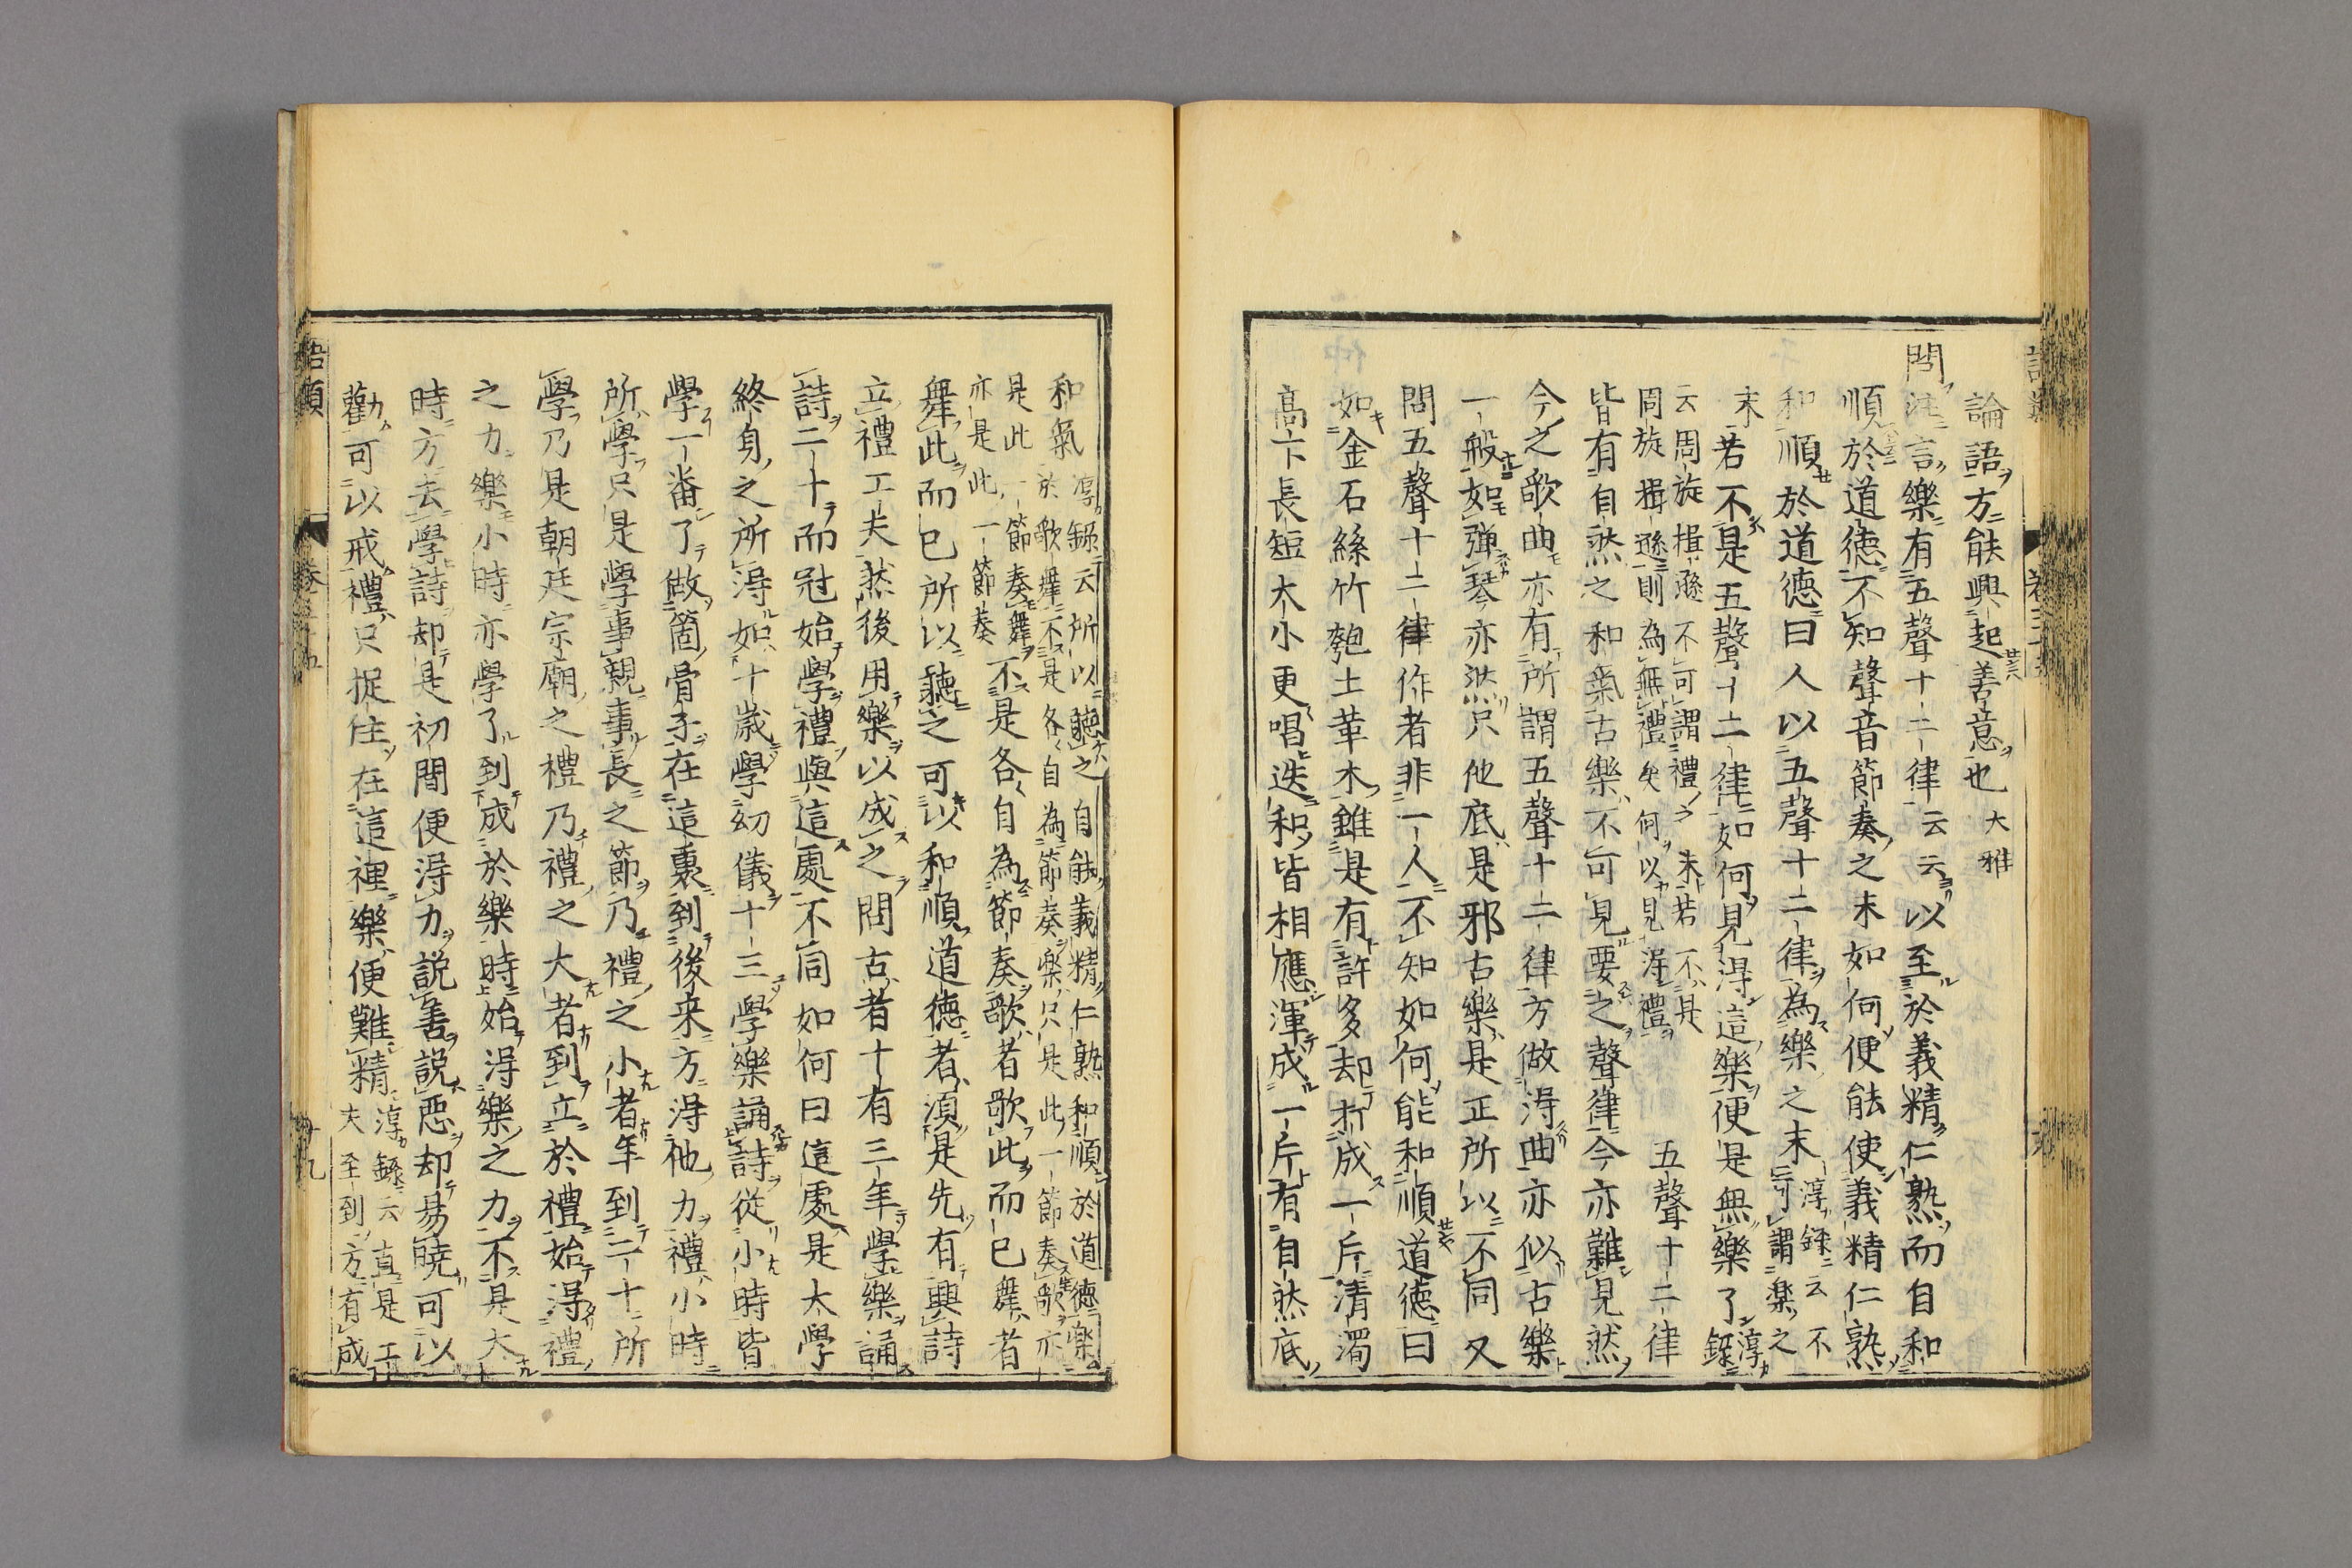 論語方能興起善意也大雅
問注言樂有五聲十二律云云以至於義精仁熟而自和
順於道德不知聲音節奏之末如何便能使義精仁熟
和順於道德曰人以五聲十二律為樂之末淳録云不可謂樂之
末若不是五聲十二律如何見得這樂便是無樂了淳録
云周旋揖遜不可謂禮之末若不是
周旋揖遜則為無禮矣何以見得禮五聲十二律
皆有自然之和氣古樂不可見要之聲律今亦難見然
今之歌曲亦有所謂五聲十二律方做得曲亦似古樂
一般如彈琴亦然只他底是邪古樂是正所以不同又
問五聲十二律作者非一人不知如何能和順道德曰
如金石絲竹匏土革木雖是有許多却打成一片清濁
高下長短大小更唱迭和皆相應渾成一片有自然底
和氣淳録云所以聽之自能義精仁熟和順於道德樂
於歌舞不是各自為節奏樂只是此一節奏歌亦
是此一節奏舞
亦是此一節奏不是各自為節奏歌者歌此而已舞者
舞此而已所以聽之可以和順道德者須是先有興詩
立禮工夫然後用樂以成之問古者十有三年學樂誦
詩二十而冠始學禮與這處不同如何曰這處是大學
終身之所得如十歲學幼儀十三學樂誦詩從小時皆
學一番了做箇骨子在這裏到後来方得他力禮小時
所學只是學事親事長之節乃禮之小者年到二十所
學乃是朝廷宗廟之禮乃禮之大者到立於禮始得禮
之力樂小時亦學了到成於樂時始得樂之力不是大
時方去學詩却是初間便得力說善說惡却易曉可以
勸可以戒禮只捉住在這裡樂便難精淳録云直是工
夫至到方有成
語類
卷三十五
十九